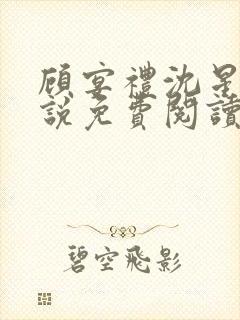 顾宴禮沈星
說免費閱讀
碧空飛影